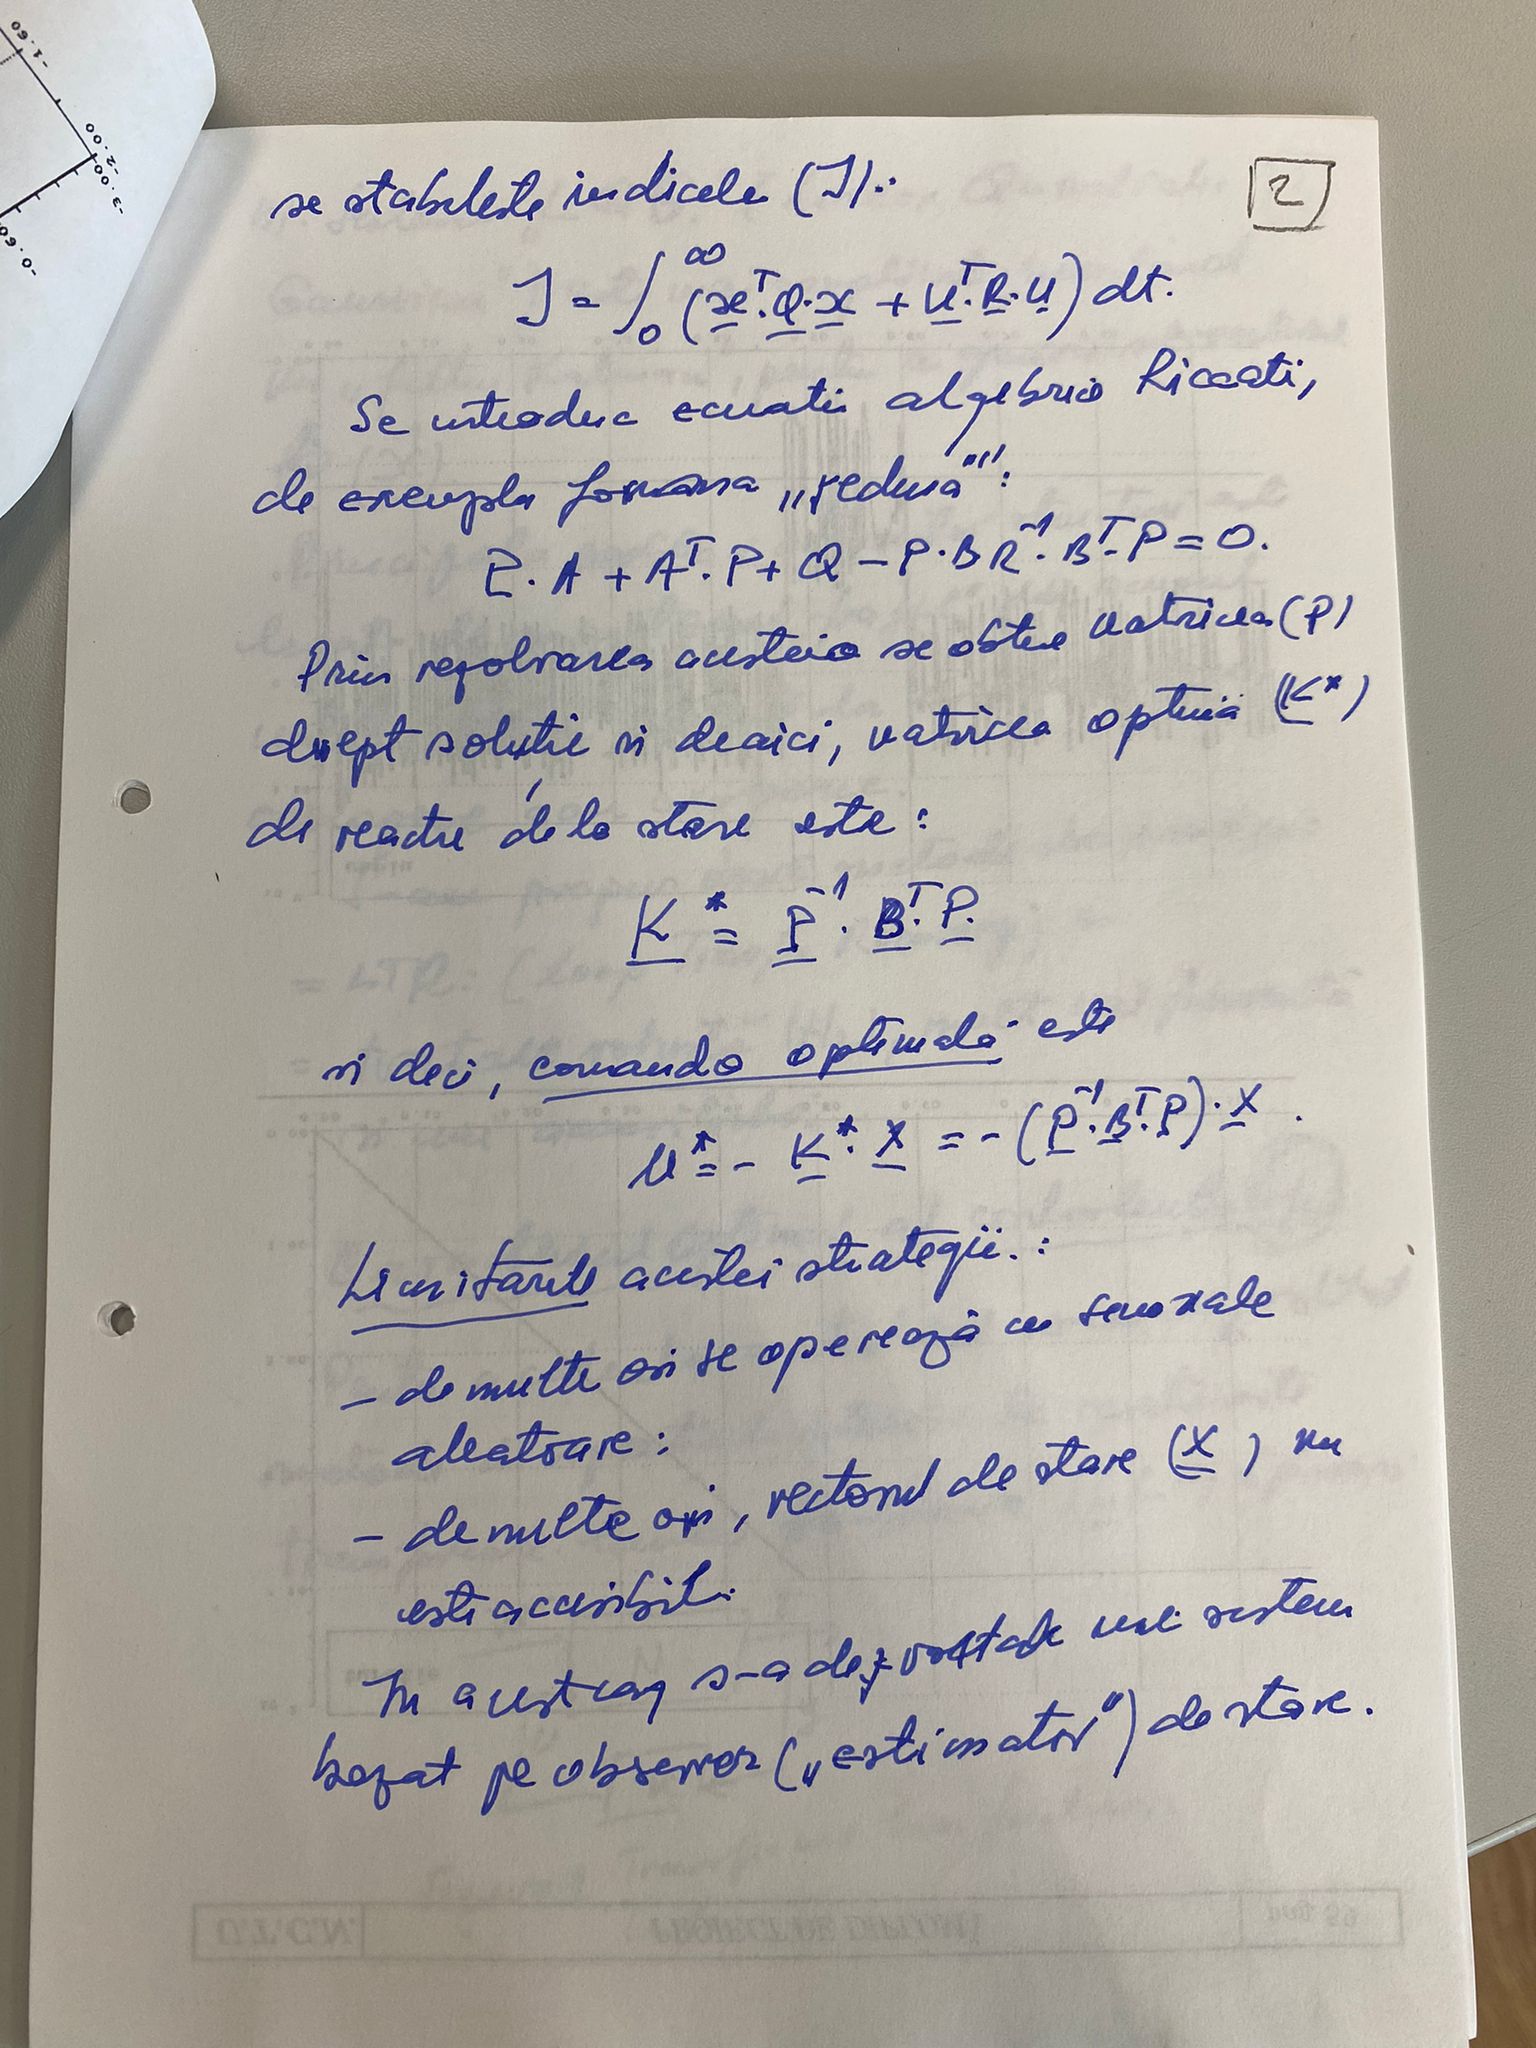 2
se stabileste indicele (J):
J = ∫₀^∞ (x^T·Q·x + U^T·R·U) dt.
Se introduc ecuatii algebric Riccati,
de exemplu forma „redusa":
P·A + A^T·P + Q − P·B R^-1·B^T·P = 0.
Prin rezolvarea acesteia se obtine matricea (P)
drept solutie si deaici, matricea optima (K*)
de reactie de la stare este:
K* = P^-1·B^T·P.
si deci, comanda optimala este
U* = − K*·X = −(P^-1·B^T·P)·X.
Limitarile acestei strategii.:
– de multe ori se operează cu semnale
aleatoare:
– de multe ori, vectorul de stare (X) nu
este accesibil.
In acest caz s-a dezvoltat un sistem
bazat pe observer („estimator") de stare.
-1.60
-2.00
-3.00
-0.60
U.T.C.N.
PROIECT DE DIPLOMA
pag. 59